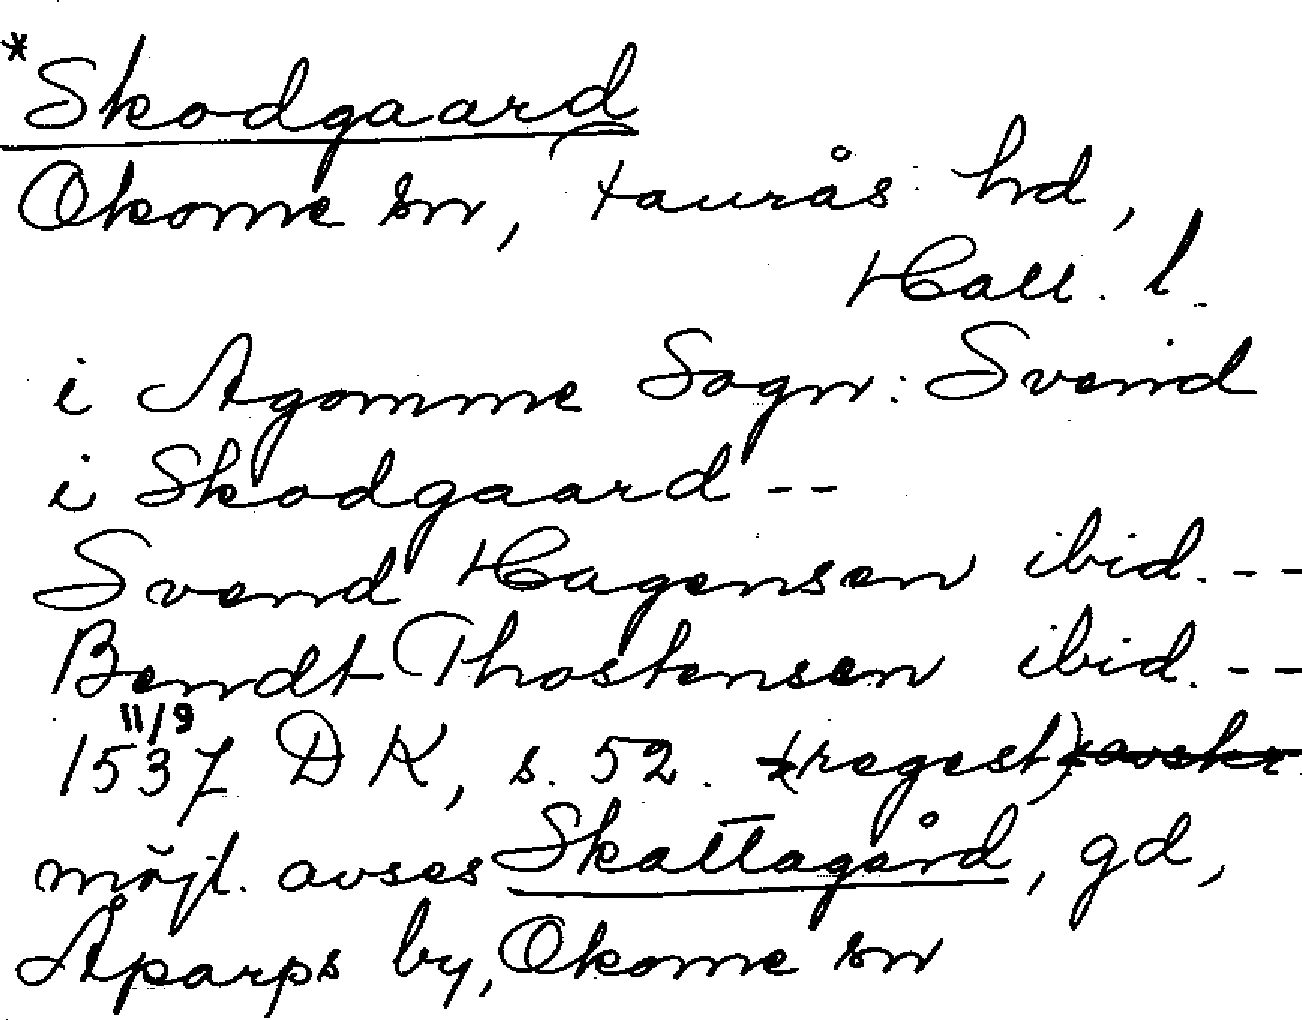 *Skodgaard
Okome sn, Faurås hd,
Hall. l.
i Agomme Sogn: Svend
i Skodgaard --
Svend Hagensen ibid. --
Bendt Thostensen ibid. --
1537 11/9 DK, s. 52. (regest)
möjl. avses Skattagård, gd,
Åparps by, Okome sn